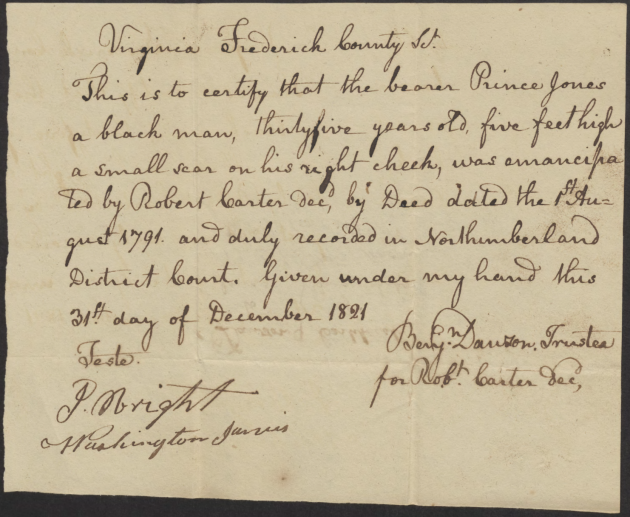 Virginia Frederick County Sct.
This is to certify that the bearer Prince Jones
a black man, thirtyfive years old, five feet high
a small scar on his right cheek, was emancipa
ted by Robert Carter decd, by Deed dated the 1st Au-
gust 1791. and duly recorded in Northumberland
District Court. Given under my hand this
31st. day of December 1821
Benjn. Dawson, Trustee
for Robt. Carter decd,
Teste.
P. Wright
Washington Jarvis